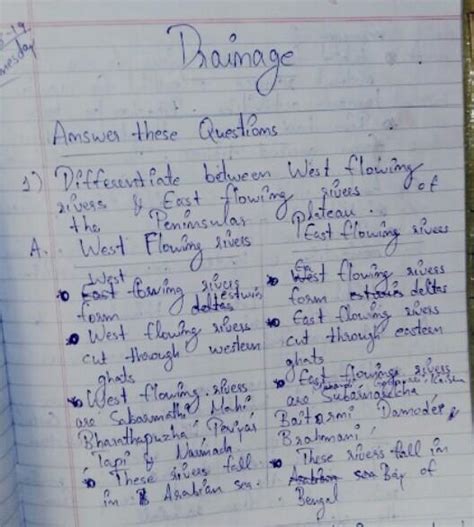 Drainage
Answer these Questions
1) Differentiate between West flowing
rivers & East flowing rivers of
the Peninsular Plateau.
A. West Flowing rivers
West
East flowing rivers
form deltas estuaries
West flowing rivers
cut through western
ghats
West flowing rivers
are Sabarmathi Mahi
Bharathapuzha, Periyar
Tapi & Narmada
These rivers fall
in Arabian sea.
East flowing rivers
Ea
West flowing rivers
form deltas
East flowing rivers
cut through eastern
ghats
East flowing rivers
are Subarnarekha
Baitarni Damoder
Brahmani
These rivers fall in
Arabian sea Bay of
Bengal